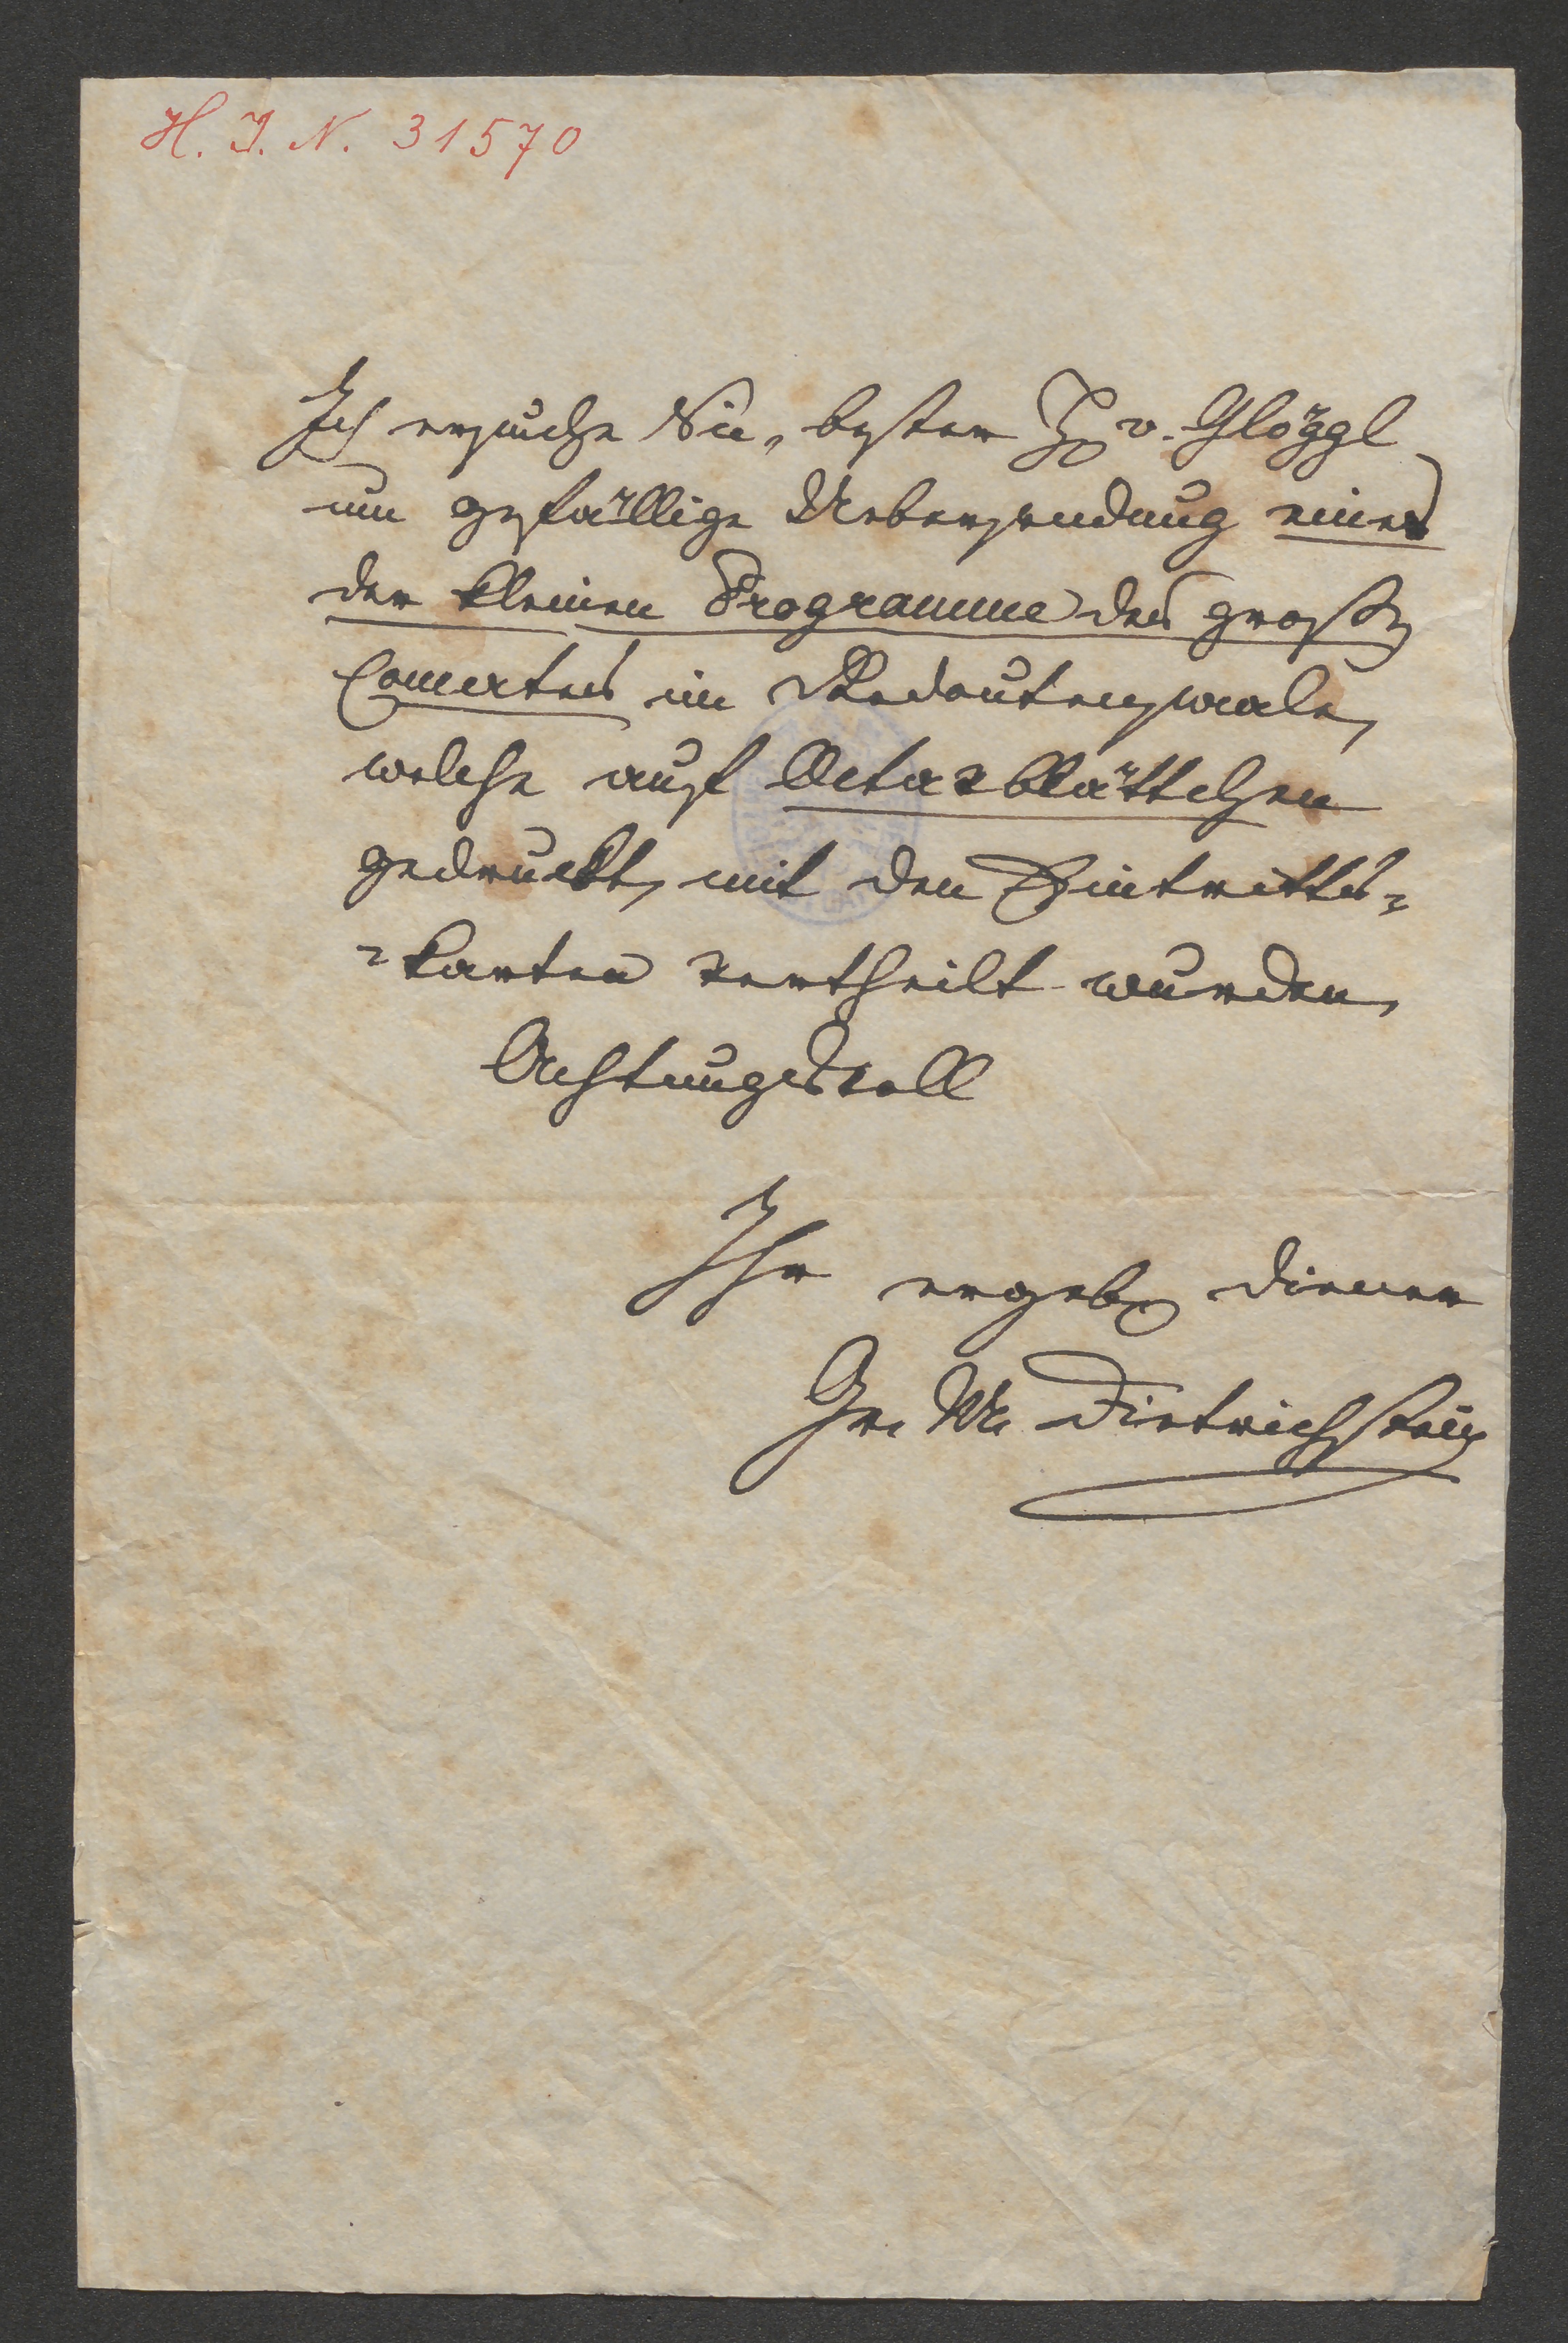 H. I. N. 31570
Ich ersuche Sie, bester H. v. Glöggl
um gefällige Uebersendung eines
der kleinen Programme des großen
Concertes im Redoutensaale,
welche auf Octavblättchen
gedruckt, mit den Eintritts=
=karten vertheilt wurden,
Achtungsvoll
Ihr ergeb. Diener
Gr. M. Dietrichstein